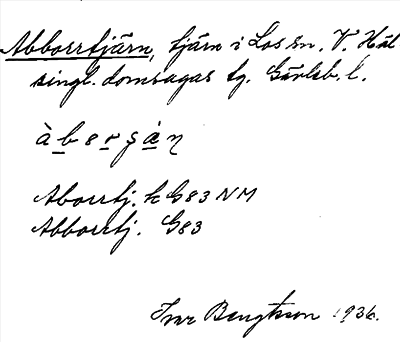 Abborrtjärn, tjärn i Los sn. V. Häl
singl. domsagas tg. Gävleb. l.
àberşàn
Aborrtj. k G83 NM
Abborrtj. G83
Ivar Bengtsson 1936.